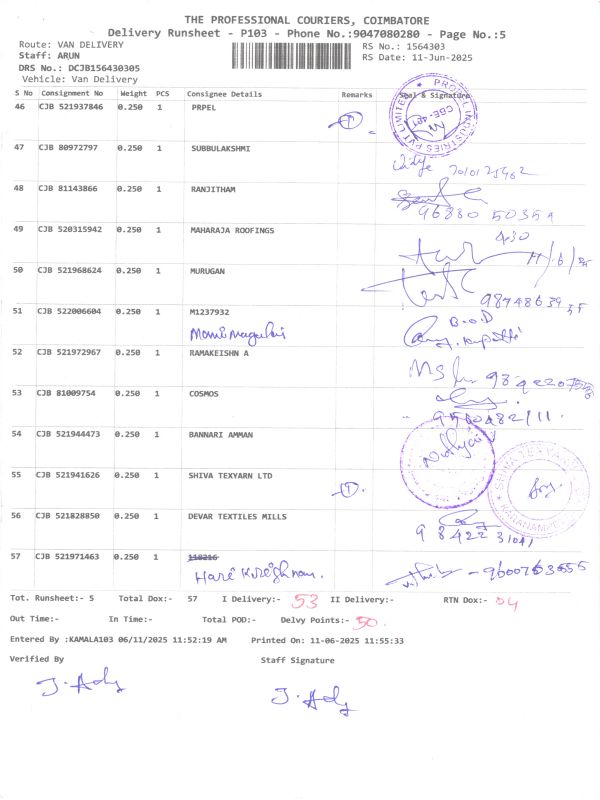 THE PROFESSIONAL COURIERS, COIMBATORE
Delivery Runsheet - P103 - Phone No.:9047080280 - Page No.:5
Route: VAN DELIVERY RS No.: 1564303
Staff: ARUN RS Date: 11-Jun-2025
DRS No.: DCJB156430305
Vehicle: Van Delivery
S No Consignment No Weight PCS Consignee Details Remarks Seal & Signature
46 CJB 521937846 0.250 1 PRPEL
47 CJB 80972797 0.250 1 SUBBULAKSHMI
48 CJB 81143866 0.250 1 RANJITHAM
96880 5035
49 CJB 520315942 0.250 1 MAHARAJA ROOFINGS
430
11/6/25
50 CJB 521968624 0.250 1 MURUGAN
51 CJB 522006604 0.250 1 M1237932
B.O.D
52 CJB 521972967 0.250 1 RAMAKEISHN A
53 CJB 81009754 0.250 1 COSMOS
54 CJB 521944473 0.250 1 BANNARI AMMAN
55 CJB 521941626 0.250 1 SHIVA TEXYARN LTD
56 CJB 521828850 0.250 1 DEVAR TEXTILES MILLS
57 CJB 521971463 0.250 1 118216
Hare Krishnan.
Tot. Runsheet:- 5 Total Dox:- 57 I Delivery:- 53 II Delivery:- RTN Dox:- 04
Out Time:- In Time:- Total POD:- Delvy Points:- 50.
Entered By :KAMALA103 06/11/2025 11:52:19 AM Printed On: 11-06-2025 11:55:33
Verified By Staff Signature